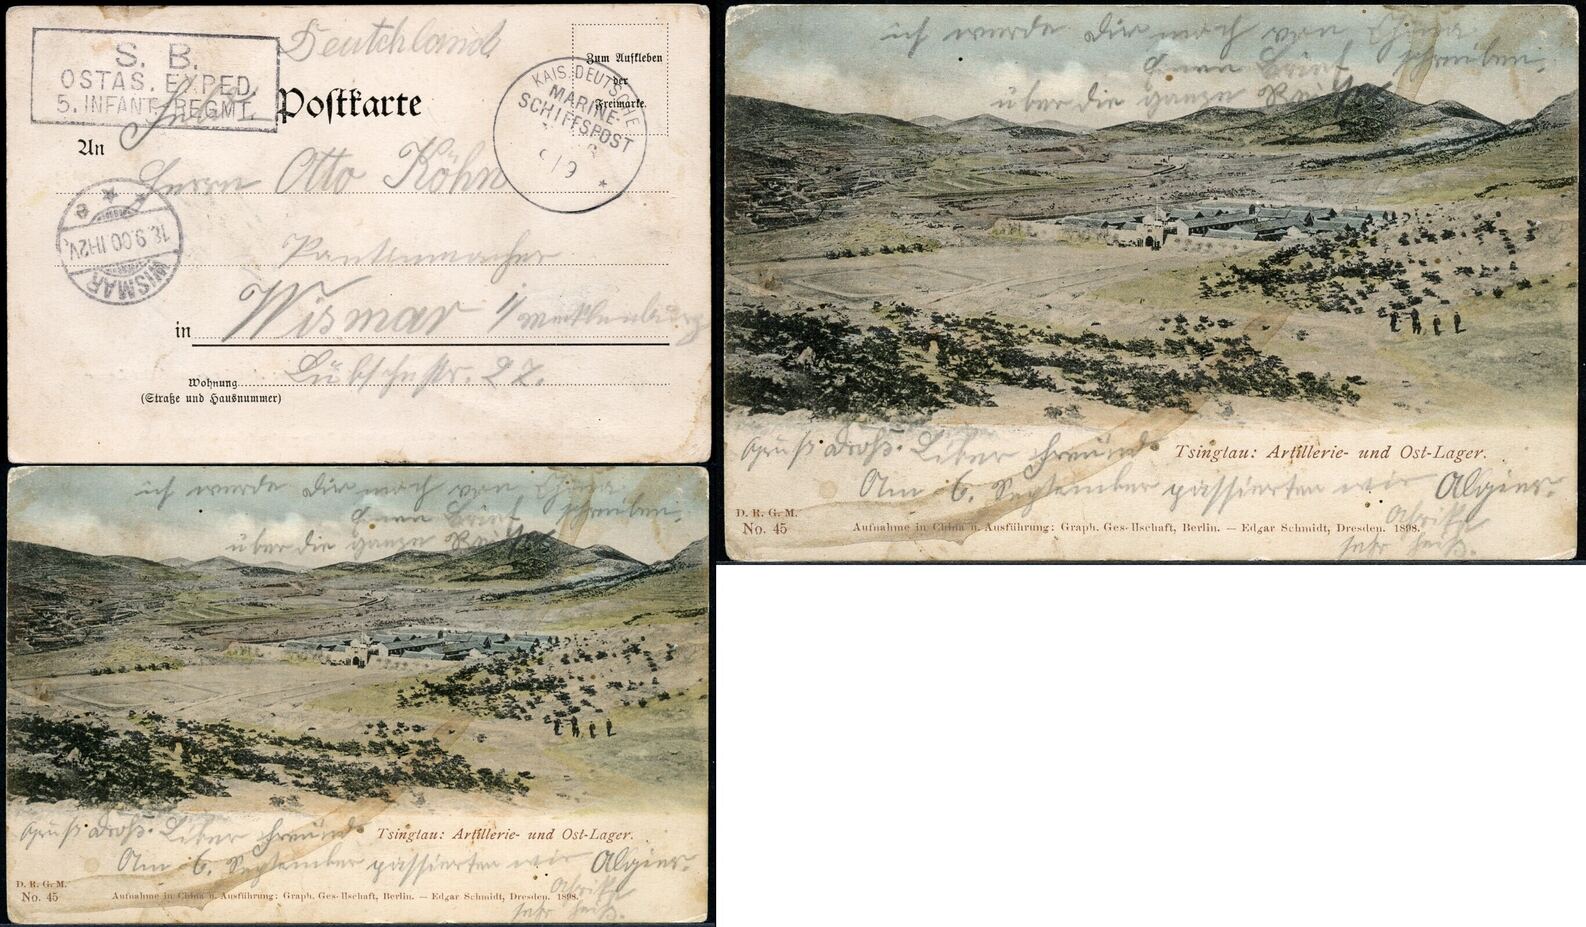 Deutchland
S. B.
OSTAS. EXPED.
5. INFANT-REGMT.
Postkarte
Zum Aufkleben
der
Freimarke.
KAIS. DEUTSCHE
MARINE-
SCHIFFSPOST
9/9
*
An
Herrn Otto Köhn
WISMAR
18.9.00.11-12V.
* * e
Pantinmacher
in Wismar i/ Mecklenburg
Wohnung Lübschestr. 27.
(Straße und Hausnummer)
ich werde Dir noch von China
einen Brief schreiben,
über die ganze Reise
Gruß Liber Freund
Tsingtau: Artillerie- und Ost-Lager.
Am 6. September passierten wir Algier.
D. R. G. M.
No. 45
Aufnahme in China u. Ausführung: Graph. Gesellschaft, Berlin. — Edgar Schmidt, Dresden. 1898.
Afrika
sehr heiß.
ich werde Dir noch von China
einen Brief schreiben,
über die ganze Reise
Gruß Liber Freund
Tsingtau: Artillerie- und Ost-Lager.
Am 6. September passierten wir Algier.
D. R. G. M.
No. 45
Aufnahme in China u. Ausführung: Graph. Gesellschaft, Berlin. — Edgar Schmidt, Dresden. 1898.
Afrika
sehr heiß.